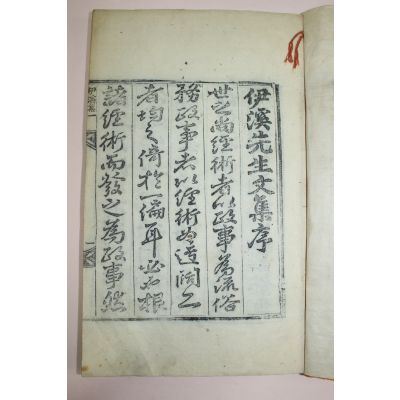 伊溪先生文集序
世之尚經術者以政事為流俗
務政事者以經術為迂闊二
者均之倚於一偏耳必也根
諸經術而發之為政事然